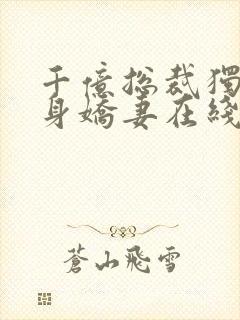 千億总裁獨
身嬌妻在綫
蒼山飛雪